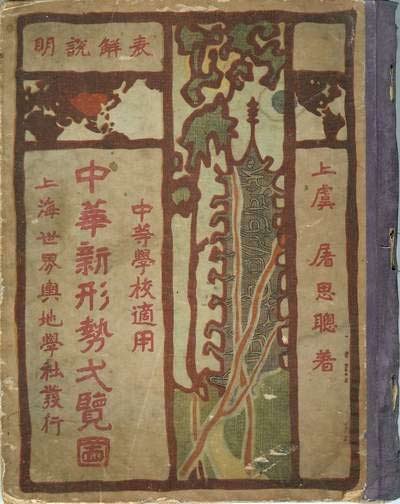 表解說明
上虞 屠思聰著
中等學校適用
中華新形勢弌覽圖
上海世界輿地學社發行